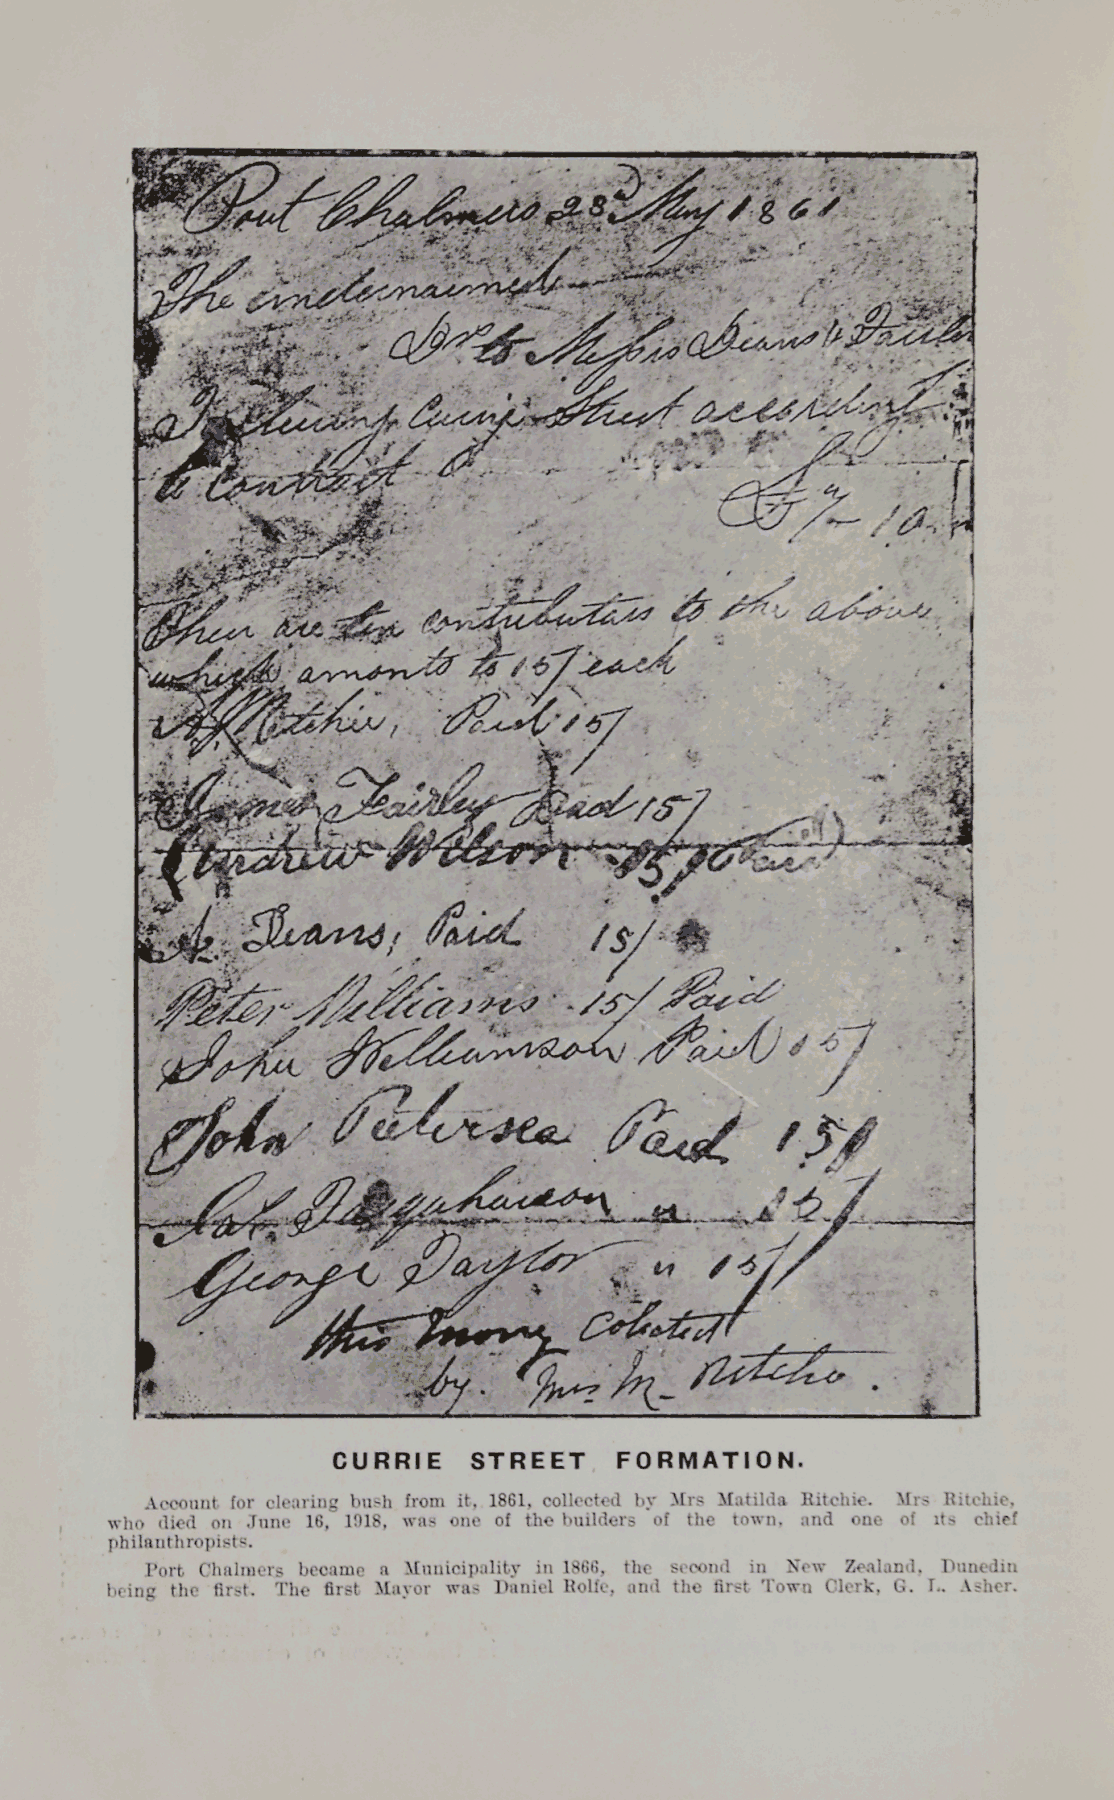 Port Chalmers 23d May 1861
The undernamed
Drs to Messrs Deans &
To cluring Currie Street according
to contract
£7 " 10
Their are ten contributars to the above
which amonts to 15/ each
A. Ritchie, Paid 15/
James Fairley Paid 15/
Andrew Wilson 15/ Paid
A. Deans, Paid 15/
Peter Williams 15/ Paid
John Williamson Paid 15/
John Petersea Paid 15/
Farquharson " 15/
George Taylor " 15/
this money Colected
by. Mrs M- Ritchie.
CURRIE STREET FORMATION.
Account for clearing bush from it, 1861, collected by Mrs Matilda Ritchie. Mrs Ritchie,
who died on June 16, 1918, was one of the builders of the town, and one of its chief
philanthropists.
Port Chalmers became a Municipality in 1866, the second in New Zealand, Dunedin
being the first. The first Mayor was Daniel Rolfe, and the first Town Clerk, G. L. Asher.